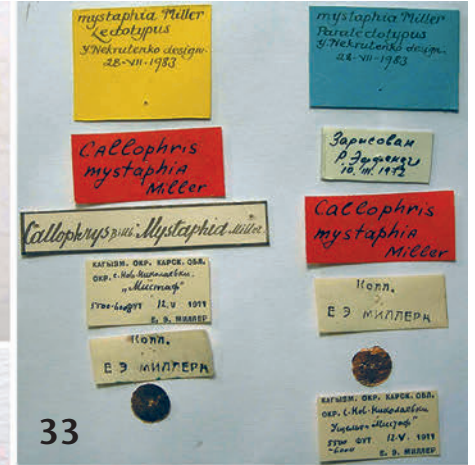 mystaphia Miller
Lectotypus
Y. Nekrutenko design.
28-VII-1983
Callophris
mystaphia
Miller
Callophrys Billb. Mystaphia Miller.
КАГЫЗМ. ОКР. КАРСК. ОБЛ.
ОКР. с. Нов. Николаевки
„Мистаф"
5700-6000 ФУТ 12.V 1911
Е. Э. МИЛЛЕР
Колл.
Е Э МИЛЛЕРА
mystaphia Miller
Paralectotypus
Y. Nekrutenko design.
28-VII-1983
Зарисован
Р.
10. III. 1972
Callophris
mystaphia
Miller
Колл.
Е. Э МИЛЛЕРА
КАГЫЗМ. ОКР. КАРСК. ОБЛ.
ОКР. с. Нов. Николаевки
Ущелье „Мистаф"
5500 ФУТ 12.V. 1911
-6000 Е. Э. МИЛЛЕР
33